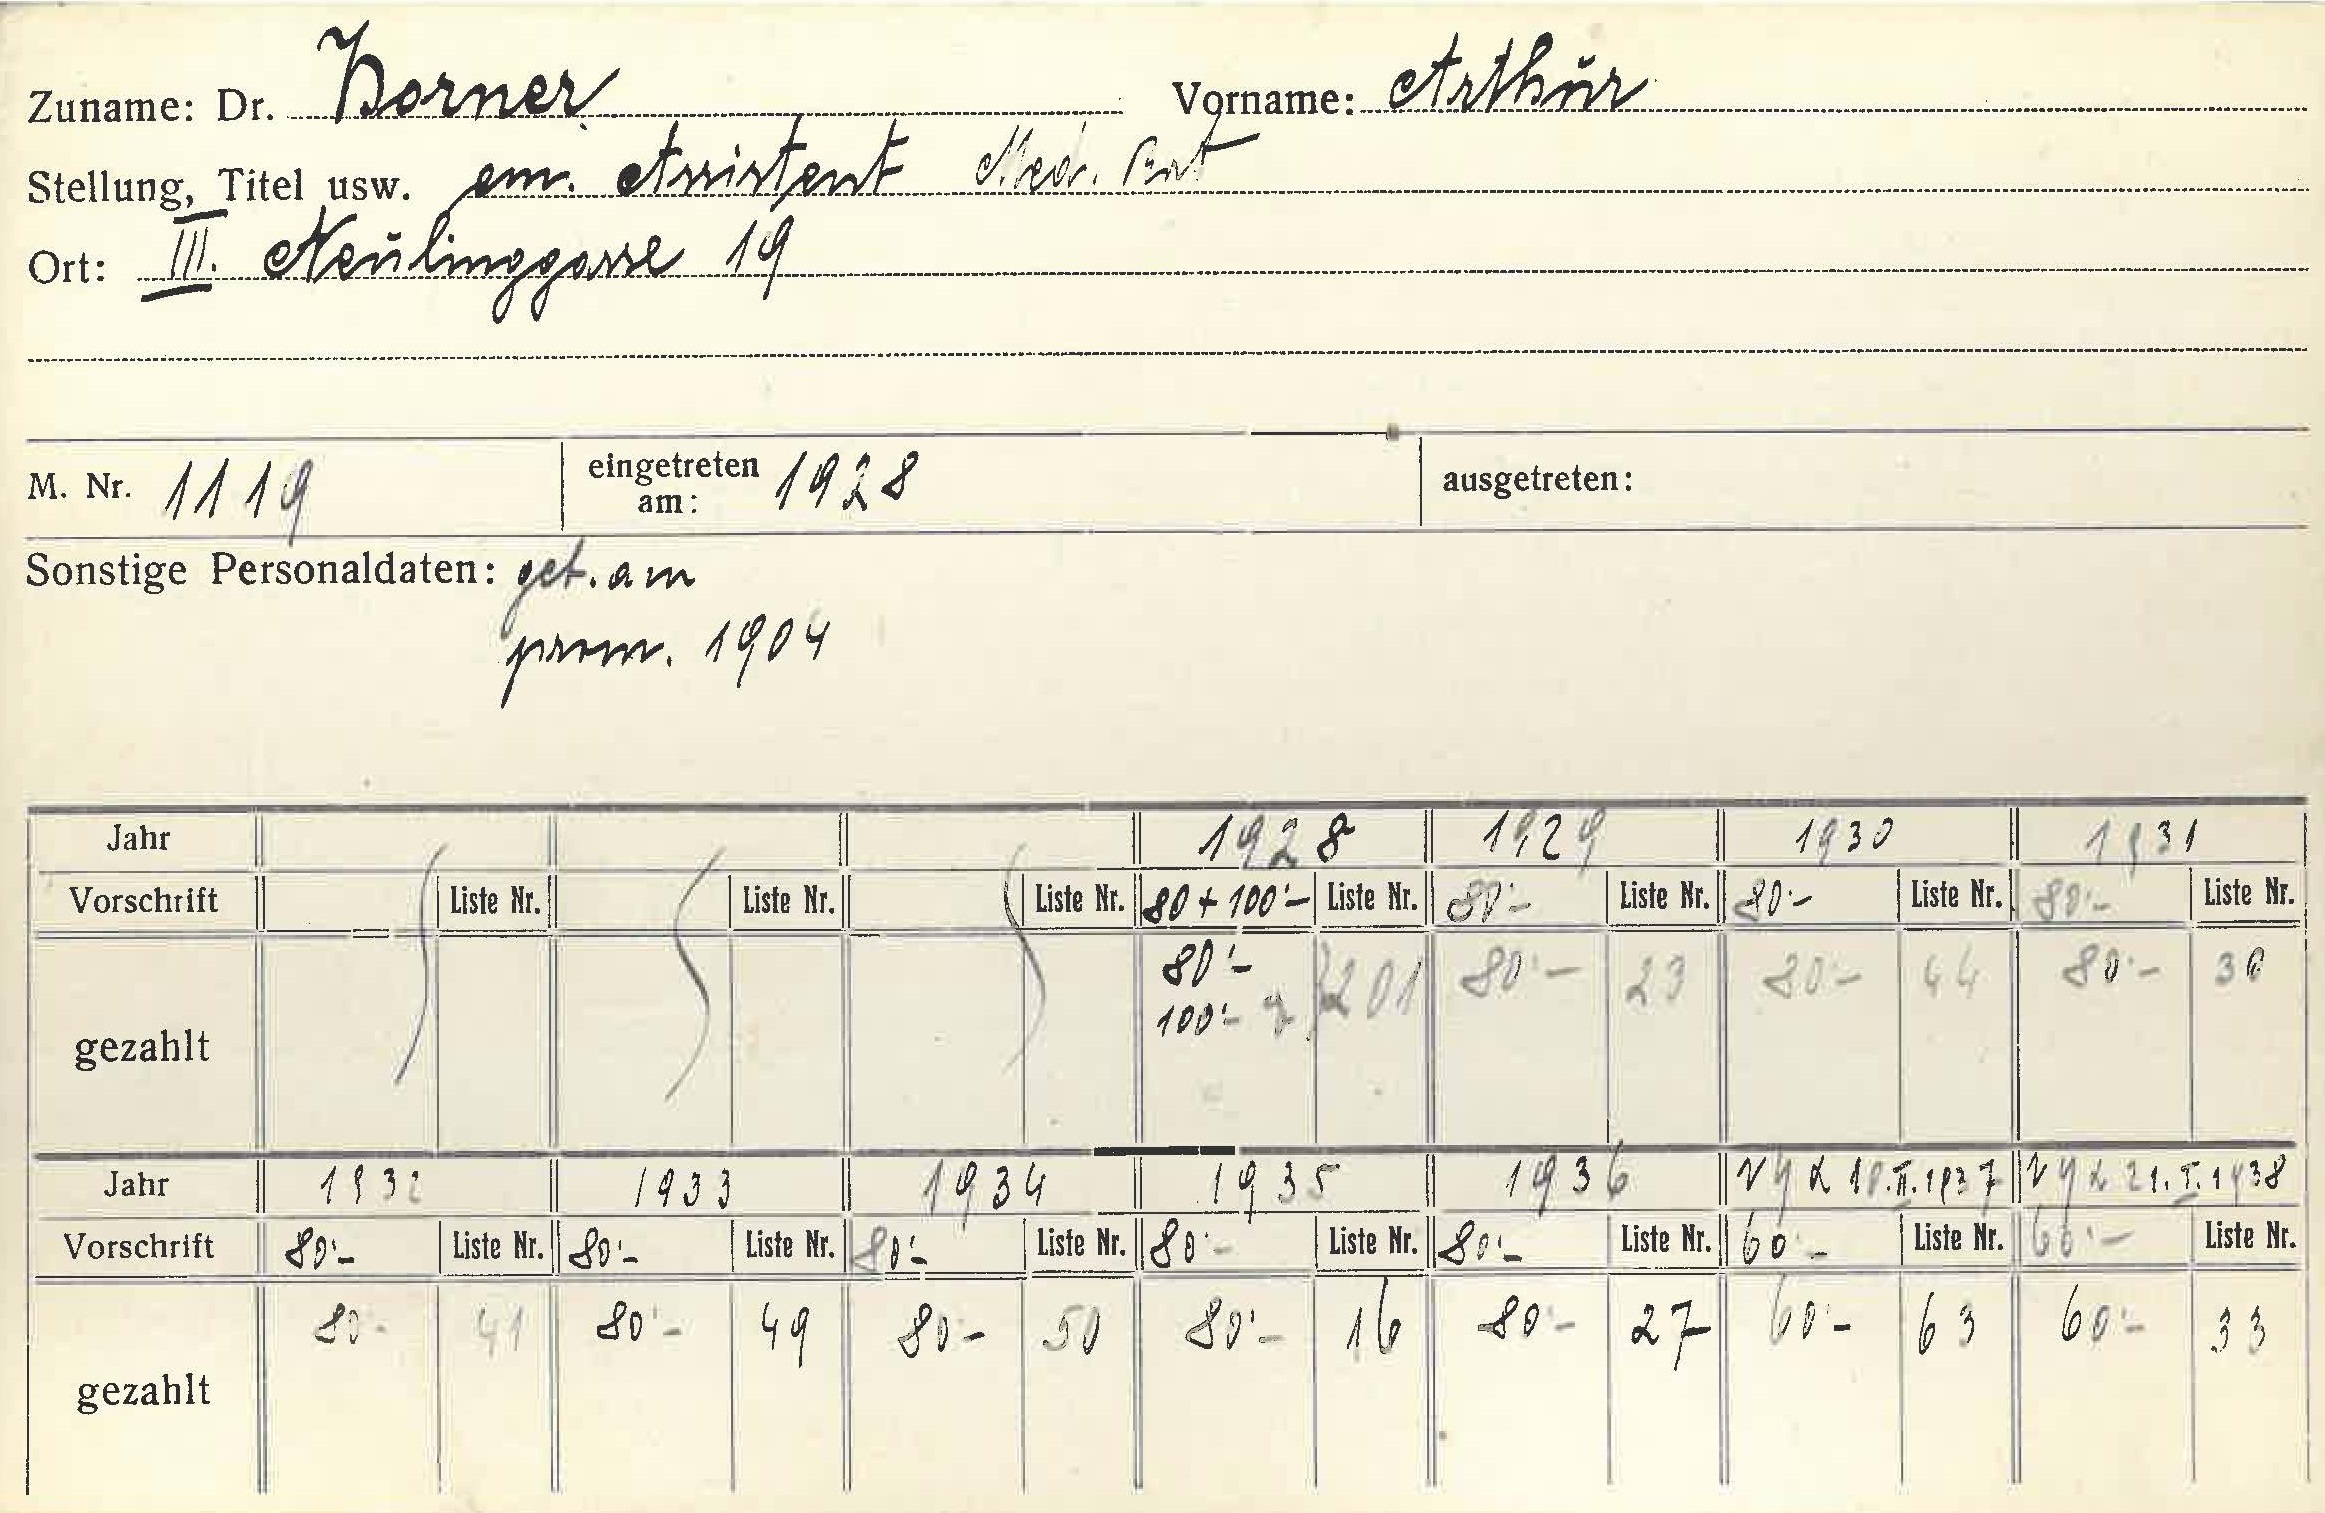 Zuname: Dr. Borner Vorname: Arthur
Stellung, Titel usw. em. Assistent Med. Rat
Ort: III. Neulinggasse 19
M. Nr. 1119 eingetreten am: 1928 ausgetreten:
Sonstige Personaldaten: geb. am
prom. 1904
Jahr 1928 1929 1930 1931
Vorschrift Liste Nr. Liste Nr. Liste Nr. 80 + 100'- Liste Nr. 80'- Liste Nr. 80'- Liste Nr. 80'- Liste Nr.
gezahlt 80'- 201 80'- 23 80'- 44 80'- 30
100'-
Jahr 1932 1933 1934 1935 1936 10.II.1937 21.I.1938
Vorschrift 80'- Liste Nr. 80'- Liste Nr. 80'- Liste Nr. 80'- Liste Nr. 80'- Liste Nr. 60'- Liste Nr. 60'- Liste Nr.
gezahlt 80'- 41 80'- 49 80'- 50 80'- 16 80'- 27 60'- 63 60'- 33